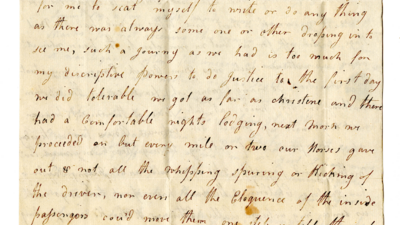 for me to seat myself to write or do any thing
as there was always some one or other droping in to
see me, such a journy as we had is too much for
my discriptive powers to do justice to, the first day
we did tolerable we got as far as christene and there
had a comfortable nights lodging, next morn we
proceeded on but every mile or two our Horses gave
out & not all the whipping spuring or Kicking of
the driver, nor even all the Eloquence of the inside
passengers could move them one step till the